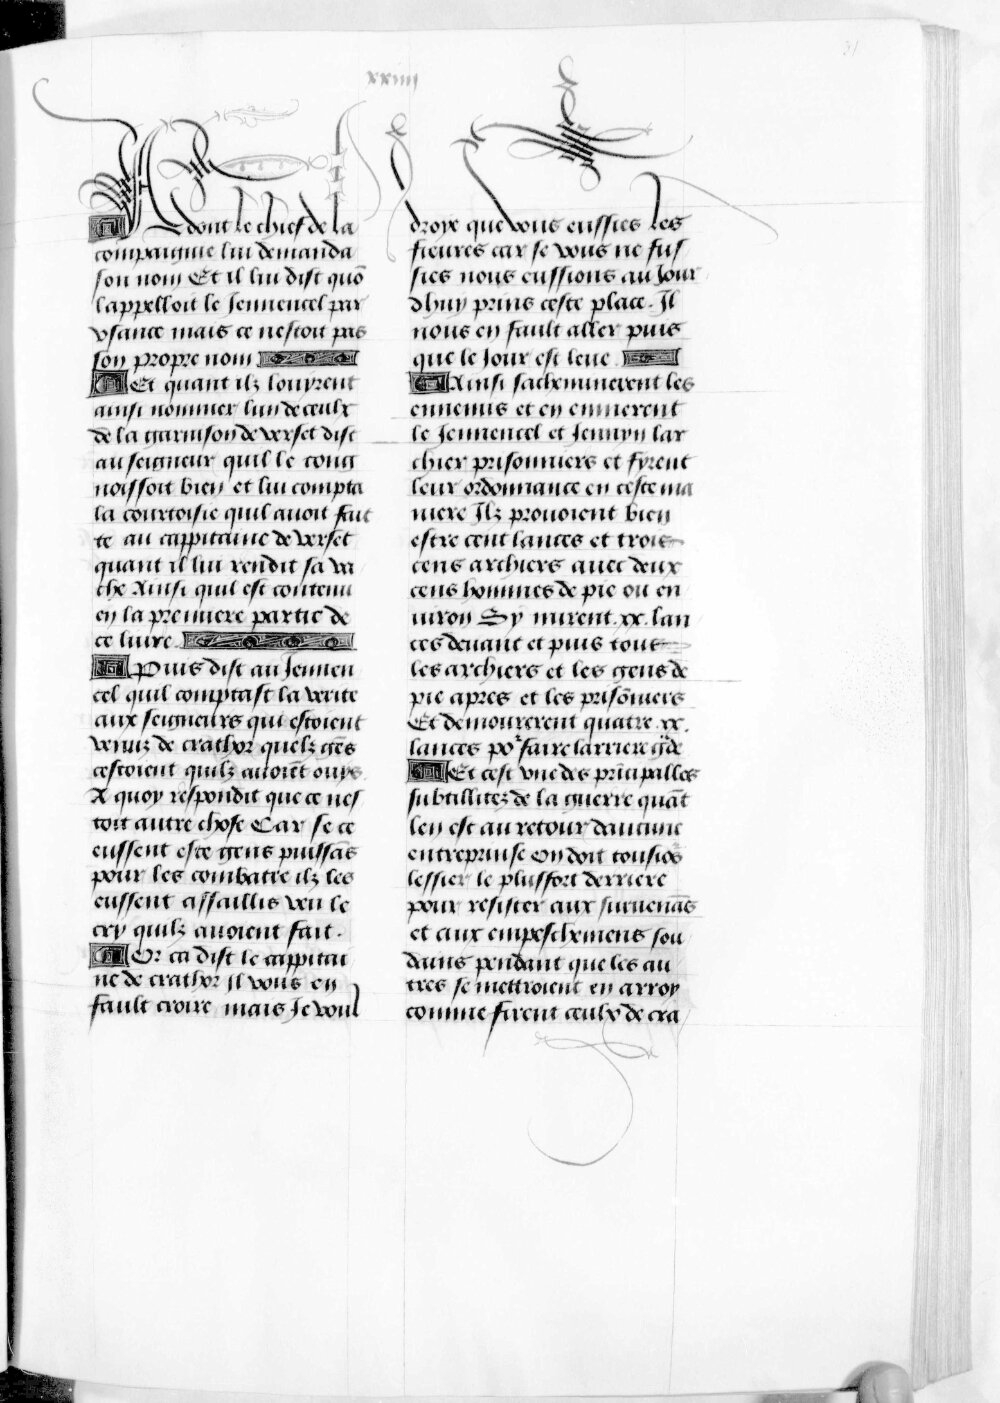 31
xxiiii
Adont le chief de la
compaignie lui demanda
son nom Et il lui dist quō
lappelloit le Jennencel par
vsance mais ce nestoit pas
son propre nom
Et quant ilz louyrent
ainsi nommer lun de ceulx
de la garnison de verset dist
au seigneur quil le cong
noissoit bien et lui compta
la courtoisie quil auoit fait
te au cappitaine de verset
quant il lui rendit sa va
che Ainsi quil est contenu
en la premiere partie de
ce liure
Puis dist au Jennen
cel quil comptast la verite
aux seigneurs qui estoient
venuz de crathor quelz gēs
cestoient quilz auoiēt ouys
A quoy respondit que ce nes
toit autre chose Car se ce
eussent este gens puissās
pour les combatre ilz les
eussent assaillis veu le
cry quilz auoient fait.
Or ca dist le cappitai
ne de crathor il vous en
fault croire mais Je voul
droye que vous eussies les
fieures car se vous ne fus
sies nous eussions au Jour
dhuy prins ceste place. Il
nous en fault aller puis
que le Jour est leue.
Ainsi sacheminerent les
ennemis et en emmerent
le Jennencel et Jennyn lar
chier prisonniers et fyrent
leur ordonnance en ceste ma
niere Ilz pouoient bien
estre cent lances et trois
cens archiers auec deux
cens hommes de pie ou en
uiron Sy mirent .xx. lan
ces deuant et puis tous
les archiers et les gens de
pie apres et les prisōniers
Et demourerent quatre .xx.
lances por faire larriere gade
Et cest vne des prīcipalles
subtillitez de la guerre quāt
len est au retour daucune
entreprinse On doit tousiors
lessier le plus fort derriere
pour resister aux suruenās
et aux empeschemens sou
dains pendant que les au
tres se mettroient en arroy
comme firent ceulx de cra